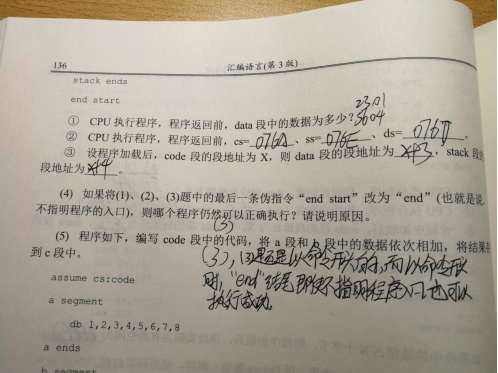 136 汇编语言(第 3 版)
stack ends
end start
① CPU 执行程序，程序返回前，data 段中的数据为多少? 2301 5604
② CPU 执行程序，程序返回前，cs= 076A 、ss= 076E 、ds= 。
③ 设程序加载后，code 段的段地址为 X，则 data 段的段地址为 X+3 ，stack 段的
段地址为 X+4 。
(4) 如果将(1)、(2)、(3)题中的最后一条伪指令“end start”改为“end”(也就是说，
不指明程序的入口)，则哪个程序仍然可以正确执行？请说明原因。
(3)
(5) 程序如下，编写 code 段中的代码，将 a 段和 b 段中的数据依次相加，将结果
到 c 段中。
(3), (3)是以命令开头的，而以命令开头
时, "end"结尾即使不指明程序入口也可以
执行成功.
assume cs:code
a segment
db 1,2,3,4,5,6,7,8
a ends
b segment